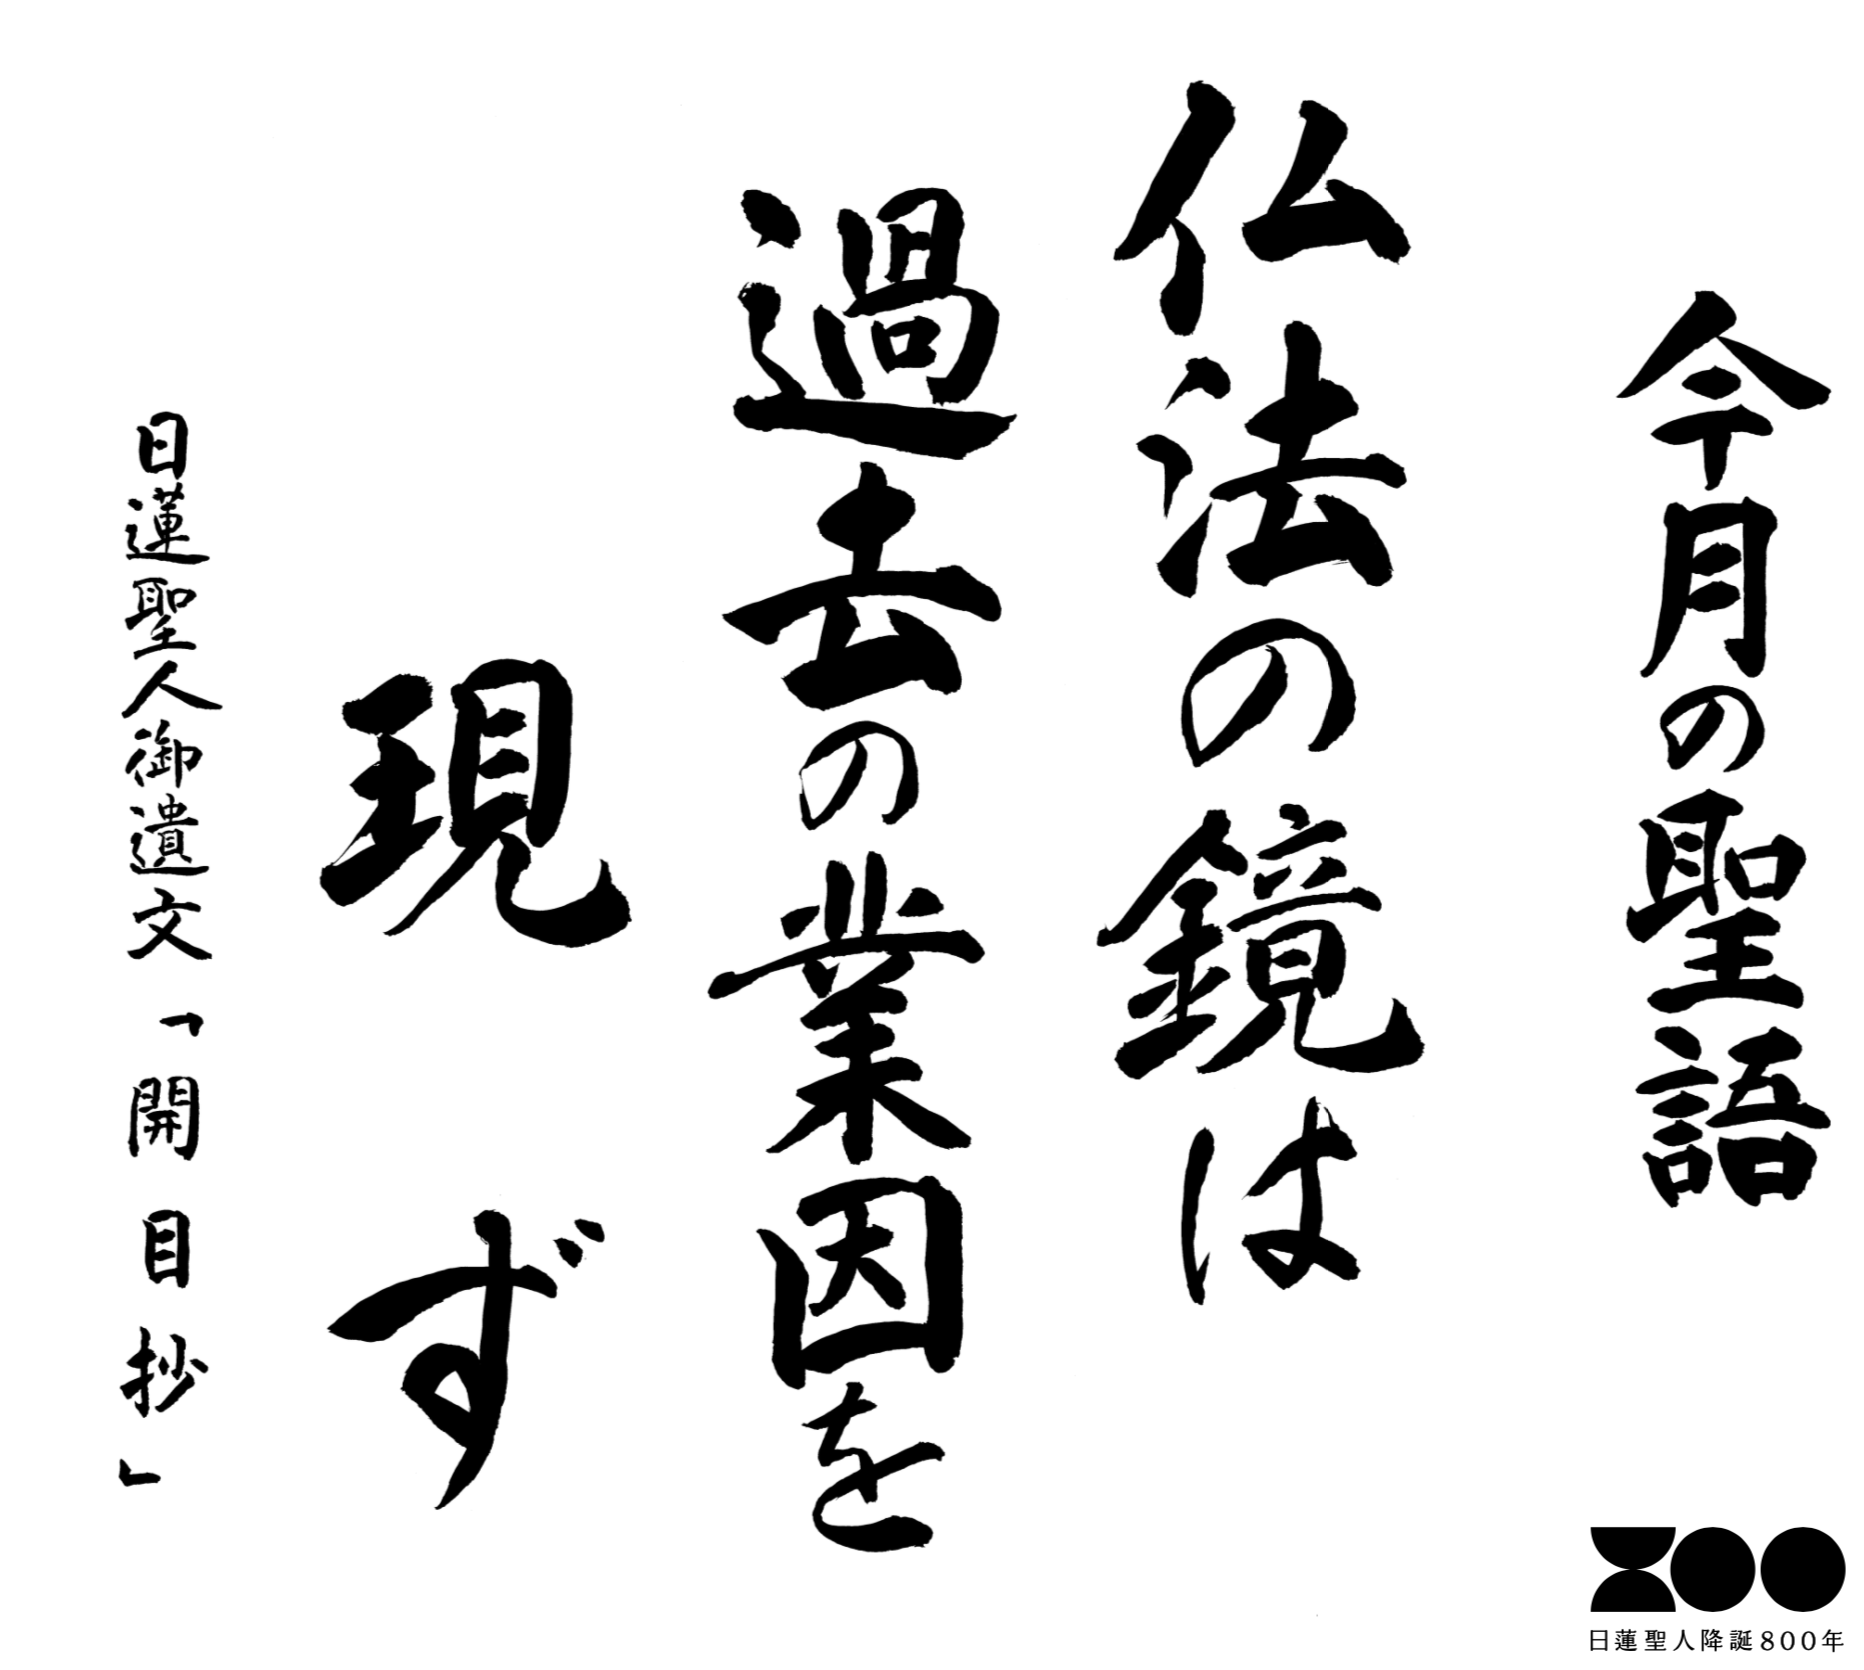 今月の聖語
仏法の鏡は
過去の業因を
現ず
日蓮聖人御遺文「開目抄」
日蓮聖人降誕800年